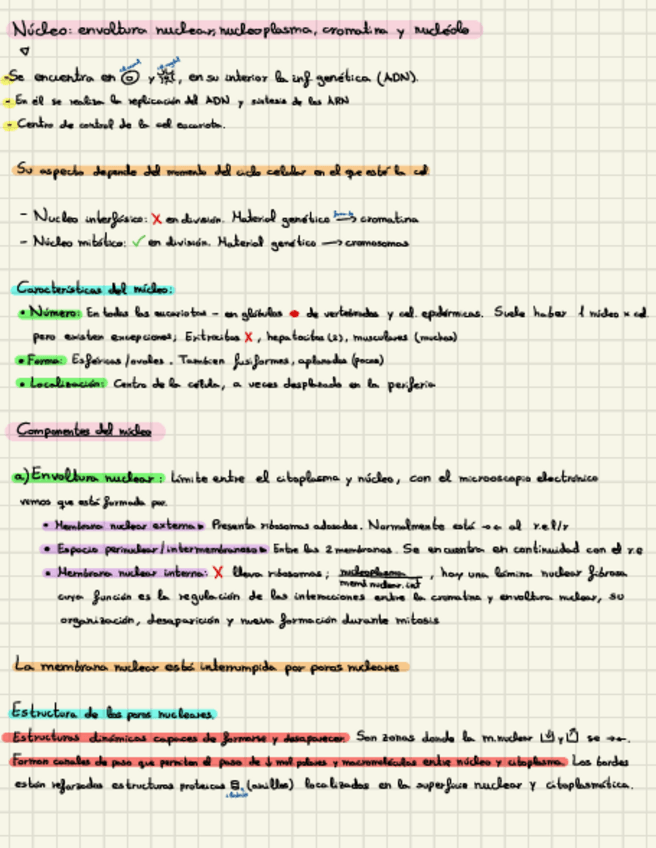 Núcleo: envoltura nuclear, nucleoplasma, cromatina y nucléolo
-Se encuentra en y , en su interior la inf genética (ADN).
- En él se realiza la replicación del ADN y síntesis de los ARN
- Centro de control de la cel eucariota.
Su aspecto depende del momento del ciclo celular en el que esté la cel
- Nucleo interfásico: X en división. Material genético → cromatina
- Núcleo mitótico: ✓ en división. Material genético → cromosomas
Características del núcleo:
• Número: En todas las eucariotas - en glóbulos de vertebrados y cel. epidérmicas. Suele haber 1 núcleo x cel
pero existen excepciones; Eritrocitos X, hepatocitos (2), musculares (muchos)
• Forma: Esféricas/ovales. Tambien fusiformes, aplanados (pocos)
• Localización: Centro de la célula, a veces desplazado en la periferia
Componentes del núcleo
a) Envoltura nuclear: Límite entre el citoplasma y núcleo, con el microscopio electrónico
vemos que está formada por:
• Membrana nuclear externa: Presenta ribosomas adosados. Normalmente está →← al r.e.l/r
• Espacio perinuclear/intermembranoso: Entre las 2 membranas. Se encuentra en continuidad con el r.e
• Membrana nuclear interna: X lleva ribosomas; nucleoplasma / mem nuclear.int , hay una lámina nuclear fibrosa
cuya función es la regulación de las interacciones entre la cromatina y envoltura nuclear, su
organización, desaparición y nueva formación durante mitosis
La membrana nuclear está interrumpida por poros nucleares
Estructura de los poros nucleares
Estructuras dinámicas capaces de formarse y desaparecer. Son zonas donde la m.nuclear y se →←.
Forman canales de paso que permiten el paso de ↓ mol polares y macromoléculas entre núcleo y citoplasma. Los bordes
están reforzados estructuras proteicas 8, (anillos) localizadas en la superficie nuclear y citoplasmática.